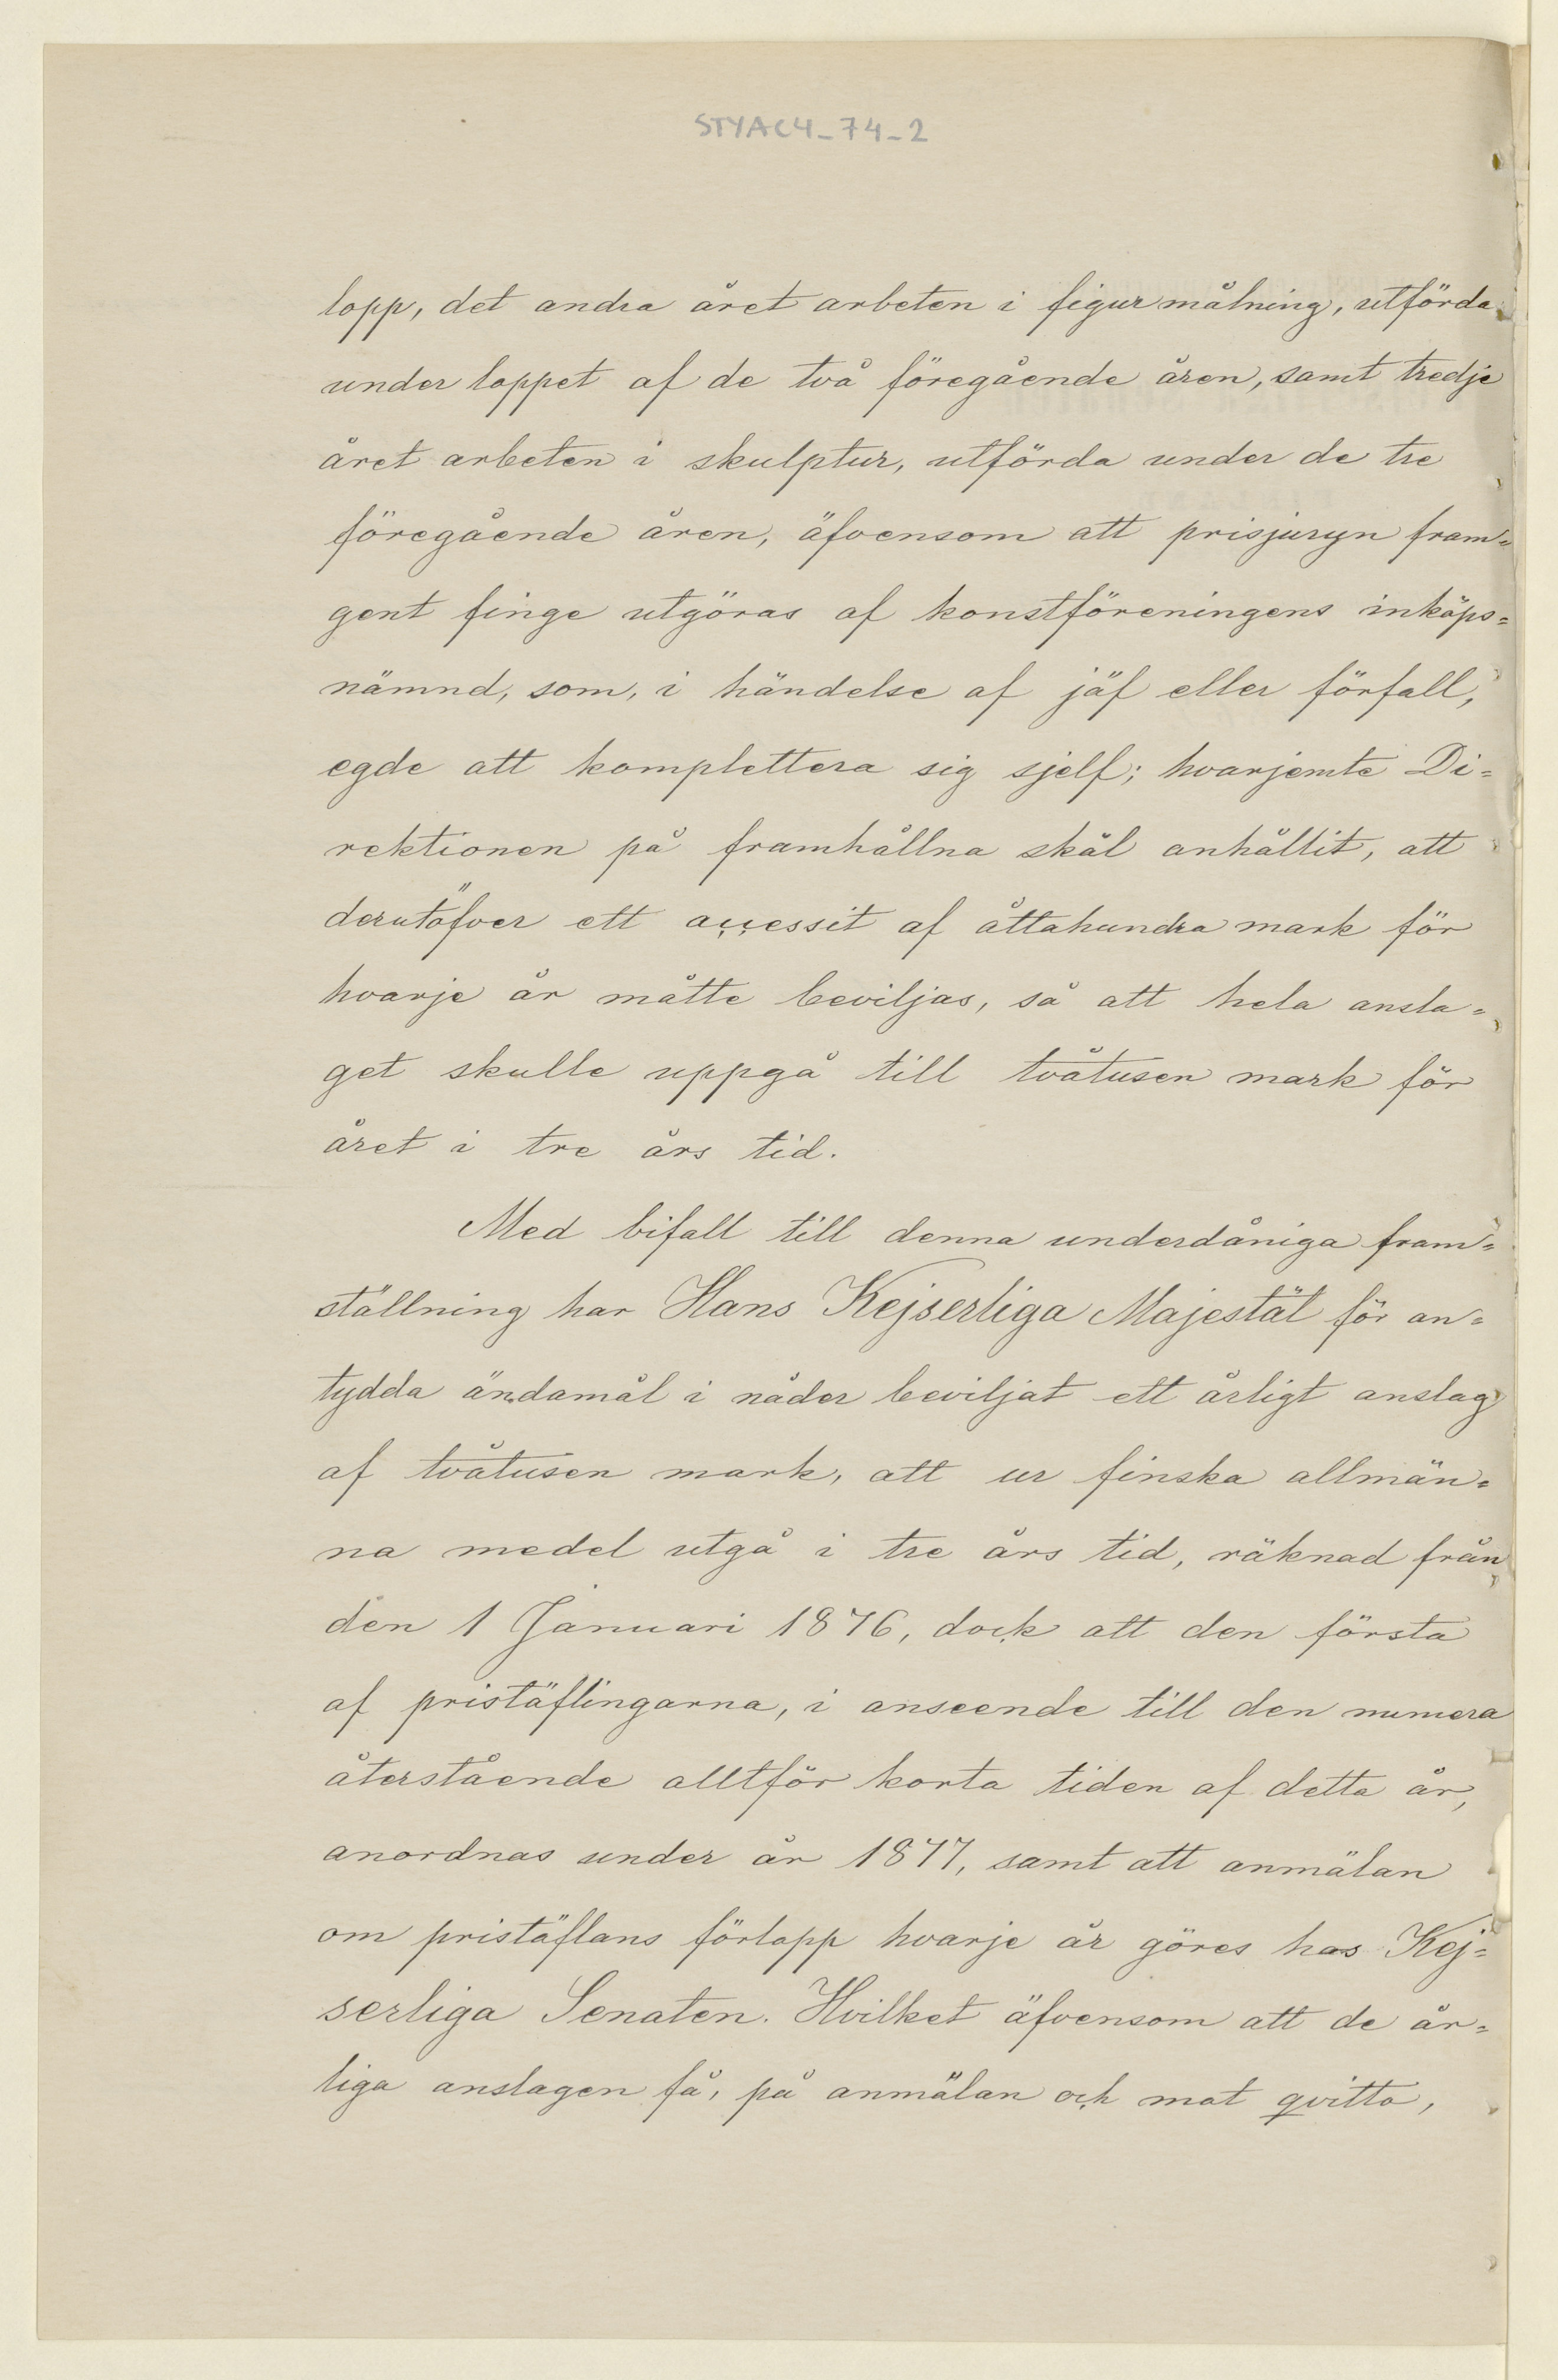 STYAC4_74_2
lopp, det andra året arbeten i figurmålning, utförda
under loppet af de två föregående åren, samt tredje
året arbeten i skulptur, utförda under de tre
föregående åren, äfvensom att prisjuryn fram=
gent finge utgöras af konstföreningens inköps=
nämnd, som, i händelse af jäf eller förfall,
egde att komplettera sig sjelf; hvarjemte Di=
rektionen på framhållna skäl anhållit, att
derutöfver ett accessit af åttahundra mark för
hvarje år måtte beviljas, så att hela ansla=
get skulle uppgå till tvåtusen mark för
året i tre års tid.
Med bifall till denna underdåniga fram=
ställning har Hans Kejserliga Majestät för an=
tydda ändamål i nåder beviljat ett årligt anslag
af tvåtusen mark, att ur finska allmän=
na medel utgå i tre års tid, räknad från
den 1 Januari 1876, dock att den första
af pristäflingarna, i anseende till den numera
återstående alltför korta tiden af detta år,
anordnas under år 1877, samt att anmälan
om pristäflans förlopp hvarje år göres hos Kej=
serliga Senaten. Hvilket äfvensom att de år=
liga anslagen få, på anmälan och mot qvitto,